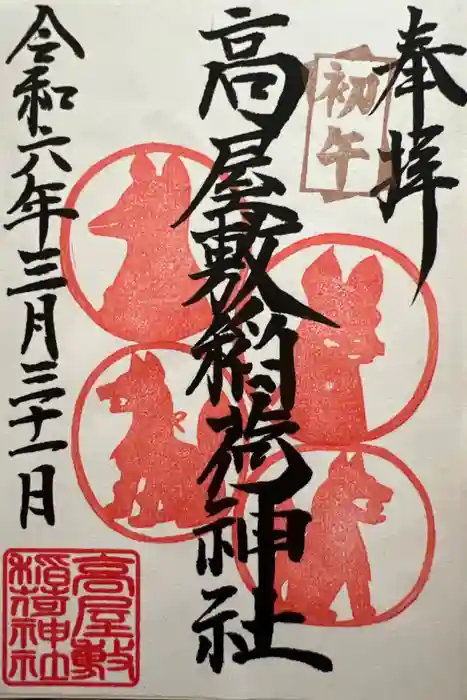 奉拝
初午
高屋敷稲荷神社
令和六年三月三十一日
高屋敷
稲荷神社